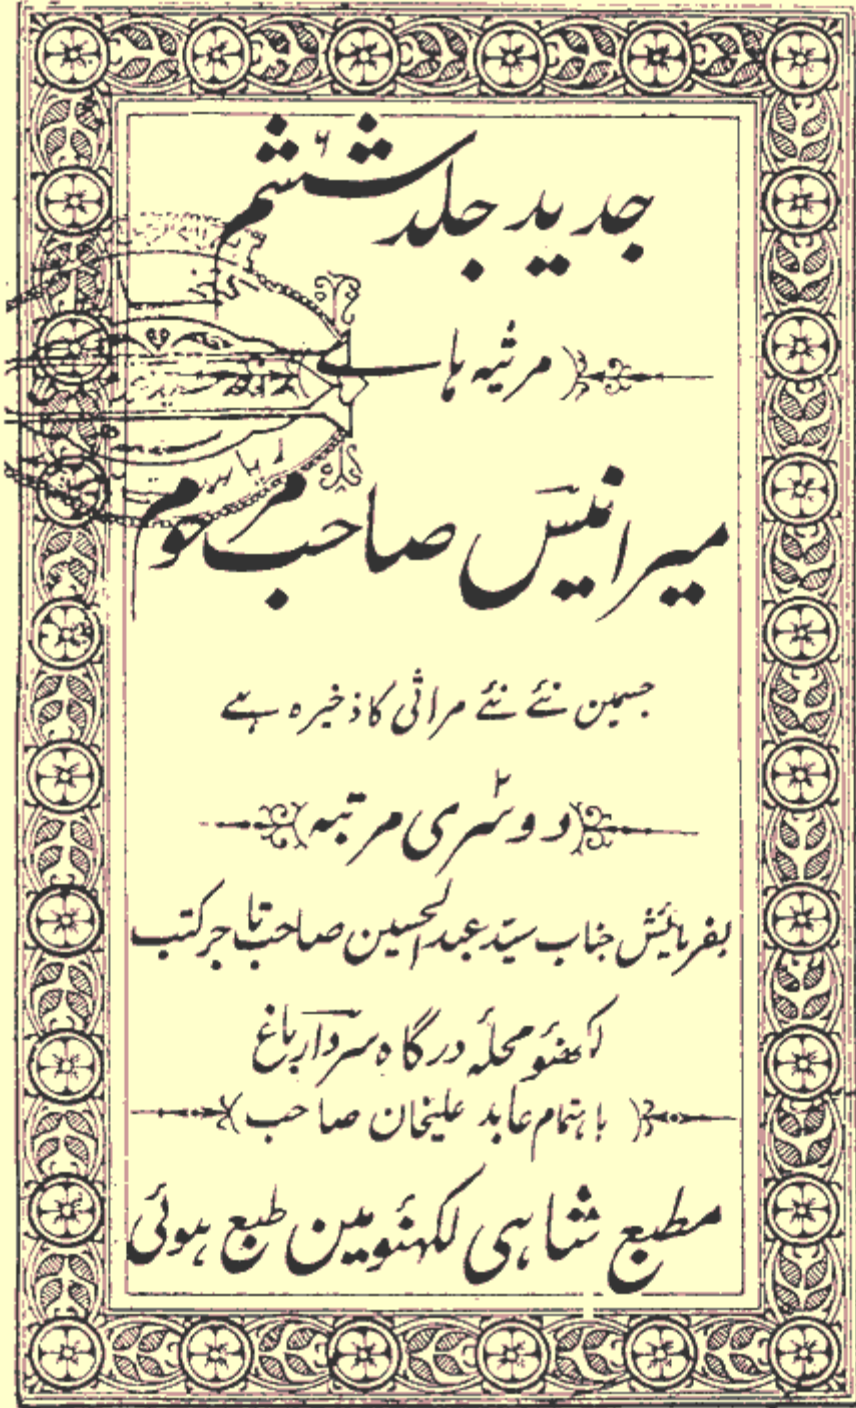 جدید جلد ششم ۶
مرثیہ ہاے
میر انیس صاحب مرحوم
جسمین نئے نئے مراثی کا ذخیرہ ہے
دوسری ۲ مرتبہ
بفرمائیش جناب سیّد عبدالحسین صاحب تاجر کتب
لکھنؤ محلہ درگاہ سردار باغ
باہتمام عابد علیخان صاحب
مطبع شاہی لکہنؤ مین طبع ہوئی